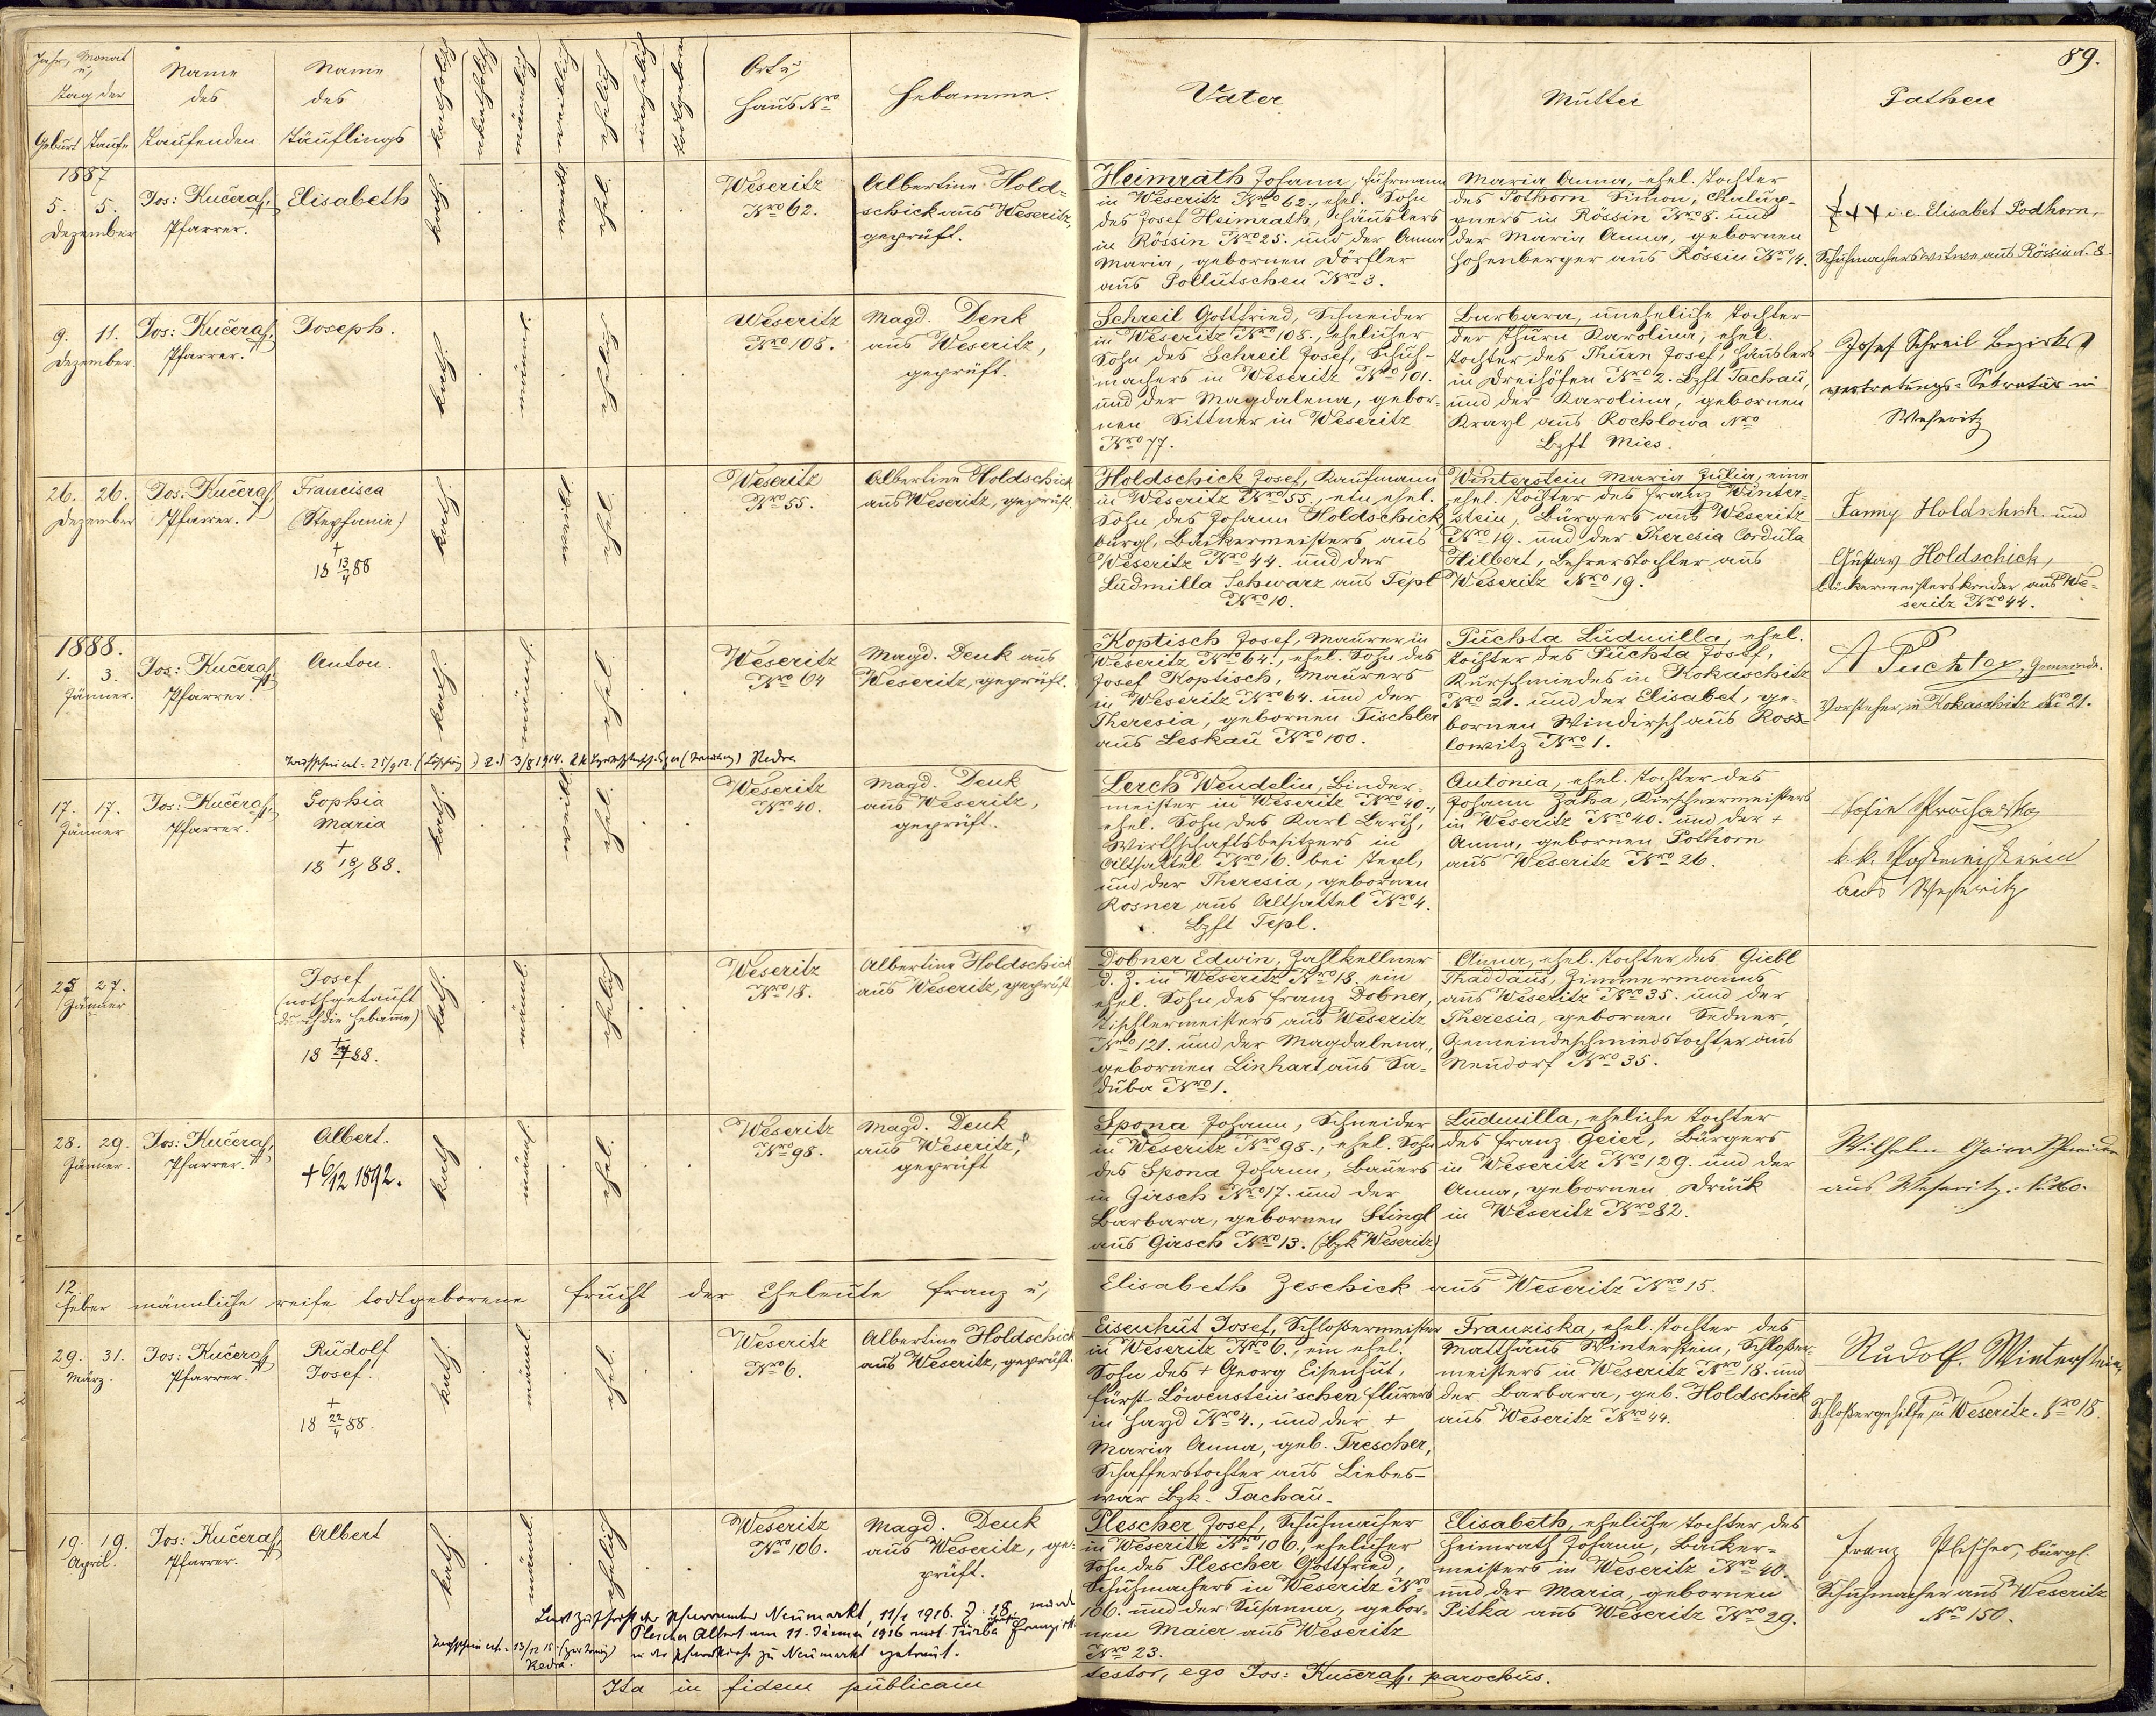 89.
Jahr, Monat
u,
Tag der
Geburt Taufe
Name
des
Taufenden
Name
des
Täuflings
katholisch
akatholisch
männlich
weiblich
ehelich
unehelich
todtgeboren
Ort u,
Haus Nro
Hebamme.
Vater
Mutter
Pathen
1887
5. 5.
Dezember
Jos: Kučera,
Pfarrer.
Elisabeth
kath.
weibl.
ehel.
Weseritz
Nro 62.
Albertine Hold=
schick aus Weseritz,
geprüft.
Heimrath Johann, Fuhrmann
in Weseritz Nro 62., ehel. Sohn
des Josef Heimrath, Häuslers
in Rössin Nro 25. und der Anna
Maria, gebornen Dörfler
aus Pollutschen Nro 3.
Maria Anna, ehel. Tochter
des Pothorn Simon, Chalup=
pners in Rössin Nro 8. und
der Maria Anna, gebornen
Hohenberger aus Rössin Nro 14.
+++ i. e. Elisabet Podhorn,
Schuhmacherswitwe aus Rössin N. 8.
9. 11.
Dezember.
Jos: Kučera,
Pfarrer.
Joseph.
kath.
männl.
ehelich
Weseritz
Nro 108.
Magd. Denk
aus Weseritz,
geprüft.
Schreil Gottfried, Schneider
in Weseritz Nro 108., ehelicher
Sohn des Schreil Josef, Schuh-
machers in Weseritz Nro 101.
und der Magdalena, gebor=
nen Sittner in Weseritz
Nro 77.
Barbara, uneheliche Tochter
der Thurn Karolina, ehel.
Tochter des Thurn Josef, Häuslers
in Dreihöfen Nro 2. Bzft Tachau,
und der Karolina, gebornen
Krayl aus Rochlowa Nro
Bzft Mies.
Josef Schreil Bezirks
vertretungs=Sekretär in
Weseritz
26. 26.
Dezember
Jos: Kučera,
Pfarrer.
Francisca
(Stephanie)
+
18 13/4 88
kath.
weibl.
ehel.
Weseritz
Nro 55.
Albertine Holdschick
aus Weseritz, geprüft.
Holdschick Josef, Kaufmann
in Weseritz Nro 55., ein ehel.
Sohn des Johann Holdschick,
bürgl. Bäckermeisters aus
Weseritz Nro 44. und der
Ludmilla Schwarz aus Tepl
Nro 10.
Winterstein Maria Julia, eine
ehel. Tochter des Franz Winter=
stein, Bürgers aus Weseritz
Nro 19. und der Theresia Cordula
Hilbert, Lehrerstochter aus
Weseritz Nro 19.
Fanny Holdschick und
Gustav Holdschick,
Bäckermeisterskinder aus We=
seritz Nro 44.
1888.
1. 3.
Jänner.
Jos: Kučera,
Pfarrer.
Anton.
kath.
männl.
ehel.
Weseritz
Nro 64
Magd. Denk aus
Weseritz, geprüft.
Koptisch Josef, Maurer in
Weseritz Nro 64., ehel. Sohn des
Josef Koptisch, Maurers
in Weseritz Nro 64. und der
Theresia, gebornen Tischler
aus Leskau Nro 100.
Puchta Ludmilla, ehel.
Tochter des Puchta Josef,
Kurschmiedes in Kokaschitz
Nro 21. und der Elisabet, ge-
bornen Windirsch aus Ross-
lowitz Nro 1.
A Puchta, Gemeinde.
Vorsteher in Kokaschitz Nro 21.
17. 17.
Jänner
Jos: Kučera,
Pfarrer.
Sophia
Maria
+
18 18/1 88.
kath.
weibl.
ehel.
Weseritz
Nro 40.
Magd. Denk
aus Weseritz,
geprüft.
Lerch Wendelin, Binder-
meister in Weseritz Nro 40.,
ehel. Sohn des Karl Lerch,
Wirthschaftsbesitzers in
Altsattel Nro 6. bei Tepl,
und der Theresia, gebornen
Rosner aus Altsattel Nro 4.
Bzft Tepl.
Antonia, ehel. Tochter des
Johann Zaha, Kürschnermeisters
in Weseritz Nro 40. und der +
Anna, gebornen Pothorn
aus Weseritz Nro 26.
Sofie Procharska
k. k. Postmeisterin
aus Weseritz
25 27.
Jänner
Josef
(nothgetauft
durch die Hebame)
+
88.
kath.
männl.
ehelich
Weseritz
Nro 18.
Albertine Holdschick
aus Weseritz, geprüft
Dobner Edwin, Zahlkellner
d. Z. in Weseritz Nro 18. ein
ehel. Sohn des Franz Dobner,
Tischlermeisters aus Weseritz
Nro 121. und der Magdalena,
gebornen Linhart aus Sa=
duba Nro 1.
Anna, ehel. Tochter des Giebl
Thaddäus, Zimmermanns
aus Weseritz Nro 35. und der
Theresia, gebornen Sedner,
Gemeindeschmiedstochter aus
Neudorf Nro 35.
28. 29.
Jänner.
Jos: Kučera,
Pfarrer.
Albert.
+ 6/12 1892.
kath
männl.
ehel.
Weseritz
Nro 98.
Magd. Denk
aus Weseritz,
geprüft
Spona Johann, Schneider
in Weseritz Nro 98., ehel. Sohn
des Spona Johann, Bauers
in Girsch Nro 17. und der
Barbara, gebornen Stingl
aus Girsch Nro 13. (Bzk Weseritz)
Ludmilla, eheliche Tochter
des Franz Geier, Bürgers
in Weseritz Nro 129. und der
Anna, gebornen Druck
in Weseritz Nro 82.
Wilhelm Geier Schneider
aus Weseritz.
12.
Feber männliche reife todtgeborene Frucht der Eheleute Franz u, Elisabeth Zeschick aus Weseritz Nro 15.
29. 31.
März.
Jos: Kučera,
Pfarrer.
Rudolf
Josef.
+
18 22/4 88.
kath.
männl.
ehel.
Weseritz
Nro 6.
Albertine Holdschick
aus Weseritz, geprüft.
Eisenhut Josef, Schloßermeister
in Weseritz Nro 6., ein ehel.
Sohn des + Georg Eisenhut,
fürst Löwenstein'schen Flurers
in Hayd Nro 4., und der +
Maria Anna, geb. Trescher,
Schafferstochter aus Liebes-
war Bzk. Tachau.
Franziska, ehel. Tochter des
Matthäus Winterstein, Schloßer-
meisters in Weseritz Nro 18. und
der Barbara, geb. Holdschick
aus Weseritz Nro 44.
Rudolf Winterstein,
Schloßergehilfe in Weseritz Nro 18.
19. 19.
April.
Jos: Kučera,
Pfarrer.
Albert
kath.
männl.
ehelich
Weseritz
Nro 106.
Magd. Denk
aus Weseritz, ge=
prüft.
Plescher Josef, Schuhmacher
in Weseritz Nro 106., ehelicher
Sohn des Plescher Gottfried,
Schuhmachers in Weseritz Nro
106. und der Susanna, gebor=
nen Maier aus Weseritz
Nro 23.
Elisabeth, eheliche Tochter des
Heimrath Johann, Bäcker-
meisters in Weseritz Nro 40.
und der Maria, gebornen
Pitka aus Weseritz Nro 29.
Franz Plescher, bürgl.
Schuhmacher aus Weseritz
Nro 150.
Laut Zuschrift des Pfarramtes Neumarkt, 11/1 1916. Z. 18 wurde
Plescher Albert am 11. Jänner 1916 mit Turba Franziska
in der Pfarrkirche zu Neumarkt getraut.
Redra.
Ita in fidem publicam testor, ego Jos: Kučera, parochus.